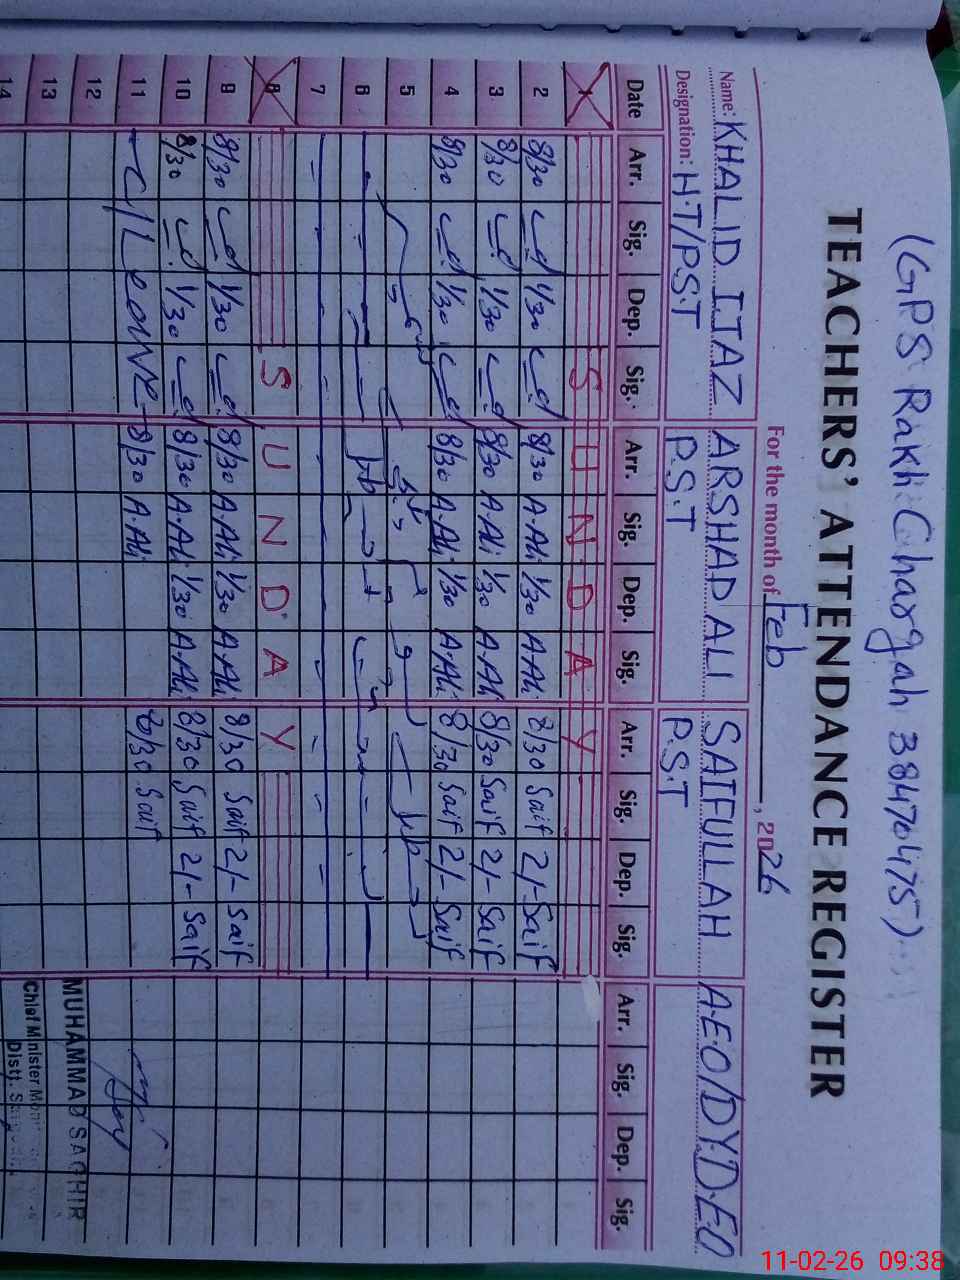 (GPS Rakh Chargah 38470475)
TEACHERS' ATTENDANCE REGISTER
For the month of Feb, 2026
Name: KHALID IJAZ ARSHAD ALI SAIFULLAH A.E.O/DY.D.EO
Designation: H.T/P.S.T P.S.T P.S.T
Date Arr. Sig. Dep. Sig. Arr. Sig. Dep. Sig. Arr. Sig. Dep. Sig. Arr. Sig. Dep. Sig.
1 S U N D A Y
2 8/30 1/30 8/30 A.Ali 1/30 A.Ali 8/30 Saif 2/- Saif
3 8/30 1/30 8/30 A.Ali 1/30 A.Ali 8/30 Saif 2/- Saif
4 8/30 1/30 8/30 A.Ali 1/30 A.Ali 8/30 Saif 2/- Saif
5
6
7
8 S U N D A Y
9 8/30 1/30 8/30 A.Ali 1/30 A.Ali 8/30 Saif 2/- Saif
10 8/30 1/30 8/30 A.Ali 1/30 A.Ali 8/30 Saif 2/- Saif
11 C/Leave 8/30 A.Ali 8/30 Saif
12
MUHAMMAD SAGHIR
13
Chief Minister
14
Distt.
11-02-26 09:38